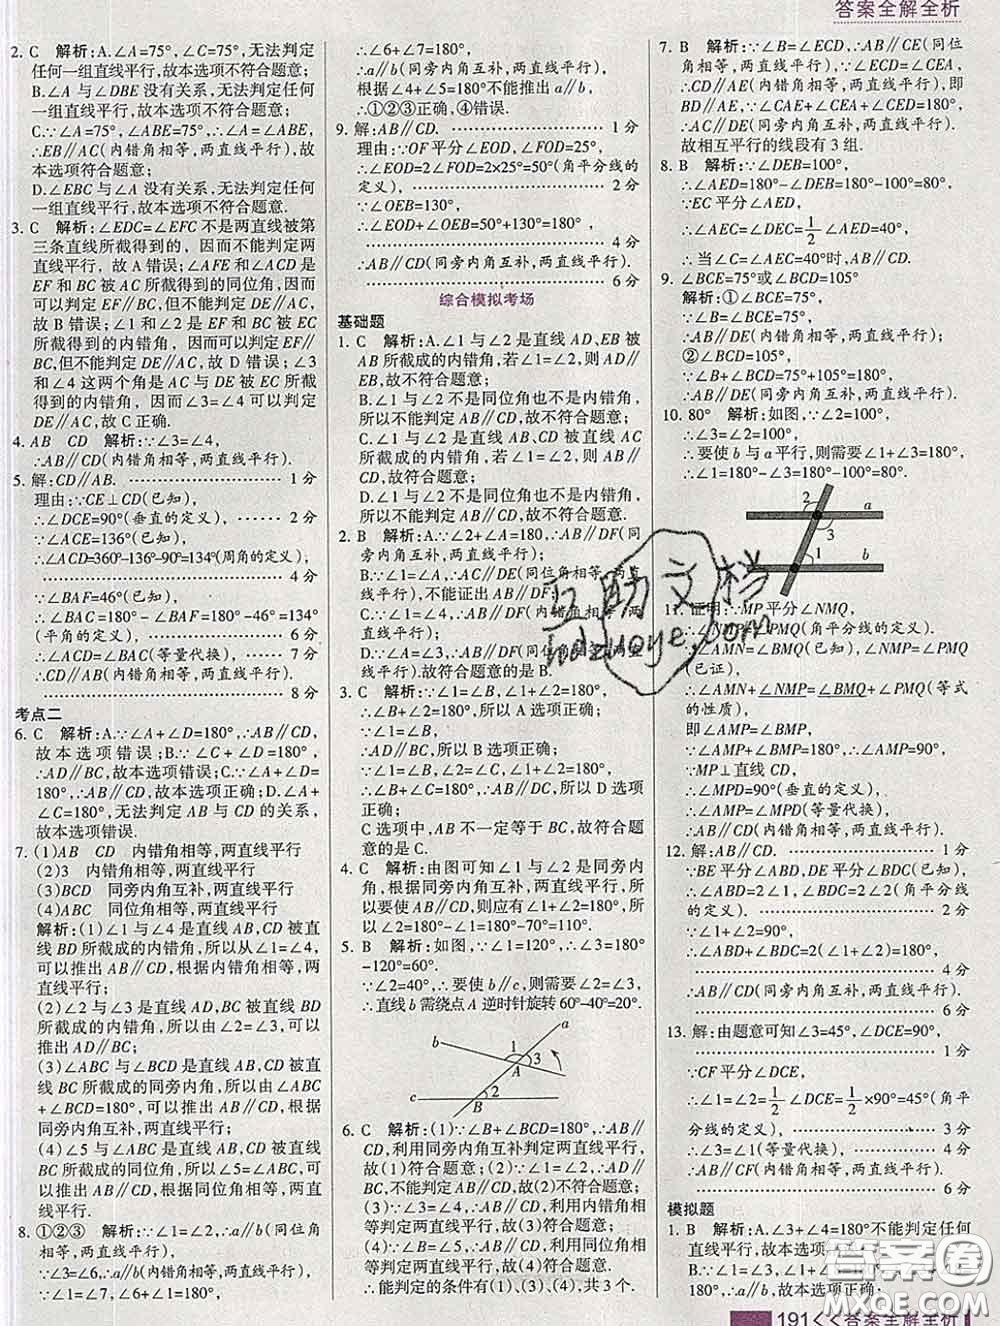 答案全解全析
2. C 解析:A.∠A=75°,∠C=75°,无法判定
任何一组直线平行,故本选项不符合题意;
B.∠A与∠DBE没有关系,无法判定任何
一组直线平行,故本选项不符合题意;
C.∵∠A=75°,∠ABE=75°,∴∠A=∠ABE,
∴EB∥AC(内错角相等,两直线平行),故
本选项符合题意;
D.∠EBC与∠A没有关系,无法判定任何
一组直线平行,故本选项不符合题意.
3. C 解析:∠EDC=∠EFC不是两直线被第
三条直线所截得到的,因而不能判定两
直线平行,故A错误;∠AFE和∠ACD是
EF和BC被AC所截得到的同位角,因而
可以判定EF∥BC,但不能判定DE∥AC,
故B错误;∠1和∠2是EF和BC被DE
所截得到的内错角,因而可以判定EF∥
BC,但不能判定DE∥AC,故D错误;∠3
和∠4这两个角是AC与DE被EC所截
得到的内错角,因而∠3=∠4可以判定
DE∥AC,故C正确.
4. AB CD 解析:∵∠3=∠4,
∴AB∥CD(内错角相等,两直线平行).
5. 解:CD∥AB. 1分
理由:∵CE⊥CD(已知),
∴∠DCE=90°(垂直的定义), 2分
∵∠ACE=136°(已知),
∴∠ACD=360°-136°-90°=134°(周角的定义),
4分
∵∠BAF=46°(已知),
∴∠BAC=180°-∠BAF=180°-46°=134°
(平角的定义), 6分
∴∠ACD=∠BAC(等量代换), 7分
∴CD∥AB(内错角相等,两直线平行).
8分
考点二
6. C 解析:A.∵∠A+∠D=180°,∴AB∥CD,
故本选项错误;B.∵∠C+∠D=180°,
∴AD∥BC,故本选项错误;C.∵∠A+∠D=
180°,∴AB∥CD,故本选项正确;D.∠A+
∠A+∠C=180°,无法判定AB与CD的关系,
故本选项错误.
7. (1)AB CD 内错角相等,两直线平行
(2)3 内错角相等,两直线平行
(3)BCD 同旁内角互补,两直线平行
(4)ABC 同位角相等,两直线平行
解析:(1)∠1与∠4是直线AB,CD被
直线BD所截成的内错角,所以从∠1=∠4,
可以推出AB∥CD,根据内错角相等,两
直线平行;
(2)∠2与∠3是直线AD,BC被直线BD
所截成的内错角,所以由∠2=∠3,可以
推出AD∥BC,根据内错角相等,两直线
平行;
(3)∠ABC与∠BCD是直线AB,CD被直
线BC所截成的同旁内角,所以由∠ABC+
∠BCD=180°,可以推出AB∥CD,根据同
旁内角互补,两直线平行;
(4)∠5与∠ABC是直线AB,CD被直线
BC所截成的同位角,所以由∠5=∠ABC
可以推出AB∥CD,根据同位角相等,两
直线平行.
8. ①②③ 解析:∵∠1=∠2,∴a∥b(同位角
相等,两直线平行),
∵∠3=∠6,∴a∥b(内错角相等,两直线平行),
∵∠4+∠7=180°,∠4=∠6,
∴∠6+∠7=180°,
∴a∥b(同旁内角互补,两直线平行),
根据∠4+∠5=180°不能推出a∥b,
∴①②③正确,④错误.
9. 解:AB∥CD. 1分
理由:∵OF平分∠EOD,∠FOD=25°,
∴∠EOD=2∠FOD=2×25°=50°(角平分线的
定义), 2分
∵∠OEB=130°,
∴∠EOD+∠OEB=50°+130°=180°,
4分
∴AB∥CD(同旁内角互补,两直线平行).
6分
综合模拟考场
基础题
1. C 解析:A.∠1与∠2是直线AD,EB被
AB所截成的内错角,若∠1=∠2,则AD∥
EB,故不符合题意;
B.∠1与∠2不是同位角也不是内错角,
所以不能判定AB∥CD,故不符合题意;
C.∠1与∠2是直线AB,CD被直线AC
所截成的内错角,若∠1=∠2,则AB∥
CD,故符合题意;
D.∠1与∠2不是同位角也不是内错角,
所以不能判定AB∥CD,故不符合题意.
2. B 解析:A.∵∠2+∠A=180,∴AB∥DF(同
旁内角互补,两直线平行);
B.∵∠1=∠A,∴AC∥DE(同位角相等,两
直线平行),不能证出AB∥DF;
C.∵∠1=∠4,∴AB∥DF(内错角相等,两
直线平行);
D.∵∠A=∠3,∴AB∥DF(同位角相等,两直
线平行).故符合题意的是B.
3. C 解析:∵∠1=∠B,∠1+∠2=180°,
∴∠B+∠2=180°,所以A选项正确;
∵∠1+∠2=180°,∠1=∠B,
∴∠B+∠2=180°,
∴AD∥BC,所以B选项正确;
∵∠1=∠B,
∴∠2+∠B=180°,所以D选项正确;
C选项中,AB不一定等于BC,故符合题
意的是C.
4. C 解析:由图可知∠1与∠2是同旁内
角,要使AB∥CD,则应有∠1+∠2=180°,所
以∠2=180°-∠1=180°-70°=110°.
5. B 解析:如图,∵∠1=120°,∴∠3=180°
-120°=60°.
∵∠2=40°,∴要使b∥c,则需要∠3=∠2,
∴直线b需绕点A逆时针旋转60°-40°=20°.
a
b
1
3
A
2
c
B
6. C 解析:(1)∵∠B+∠BCD=180°,∴AB∥
CD,利用同旁内角互补判定两直线平行,
故(1)符合题意;(2)∵∠1=∠2,∴AD∥
BC,故(2)不符合题意;(3)∵∠3=∠4,
∴AB∥CD,符合题意,利用内错角相
等判定两直线平行,故(3)符合题意;
(4)∵∠B=∠5,∴AB∥CD,利用同位角
相等判定两直线平行,故(4)符合题意.
∴能判定的条件有(1)、(3)、(4),共3个.
7. B 解析:∵∠B=∠ECD,∴AB∥CE(同位
角相等,两直线平行),∵∠ECD=∠CEA,
∴CD∥AE(内错角相等,两直线平行),即
BD∥AE,∵∠CAE+∠CEA+∠ECD=180°,
∴BD∥AE(同旁内角互补,两直线平行).
故相互平行的线段有3组.
8. B 解析:∵∠DEB=100°,
∴∠AED=180°-∠DEB=180°-100°=80°,
∵EC平分∠AED,
∴∠AEC=∠DEC=1/2∠AED=40°,
∴当∠C=∠AEC=40°时,AB∥CD.
9. ∠BCE=75°或∠BCD=105°
解析:①∠BCE=75°,
∵∠ABC=75°,∴∠BCE=∠ABC,
∴AB∥DE(内错角相等,两直线平行);
②∠BCD=105°,
∵∠ABC=75°,∴∠ABC+∠BCD=180°,
∴AB∥DE(同旁内角互补,两直线平行).
10. 80° 解析:如图,∵∠2=100°,
∴要使b与a平行,则需要∠1+∠3=180°,
∴∠1=180°-∠3=180°-100°=80°.
2
3
a
1
b
11. 证明:∵MP平分∠NMQ,
∴∠NMP=∠PMQ(角平分线的定义),
∵∠AMN=∠BMQ(已知),∠NMP=∠PMQ
(已证),
∴∠AMN+∠NMP=∠BMQ+∠PMQ(等式
的性质),
即∠AMP=∠BMP,
∵∠AMP+∠BMP=180°,∴∠AMP=90°,
∵MP⊥直线CD,
∴∠MPD=90°(垂直的定义),
∴∠AMP=∠MPD(等量代换),
∴AB∥CD(内错角相等,两直线平行).
12. 解:AB∥CD. 1分
∵BE平分∠ABD,DE平分∠BDC(已知),
∴∠ABD=2∠1,∠BDC=2∠2(角平分线
的定义). 2分
∵∠1+∠2=90°,
∴∠ABD+∠BDC=2(∠1+∠2)=180°,
4分
∴AB∥CD(同旁内角互补,两直线平行).
6分
13. 解:由题意可知∠3=45°,∠DCE=90°,
1分
∵CF平分∠DCE,
∴∠1=∠2=1/2∠DCE=1/2×90°=45°(角平
分线的定义), 3分
∴∠3=∠1(等量代换),
∴AB∥CF(内错角相等,两直线平行).
6分
模拟题
1. B 解析:A.∠3+∠4=180°不能判定任何
直线平行,故本选项
∥b,故本选项正确;
互助文档
hdzuoye.com
答案圈
MXQE.COM
191<<答案全解全析